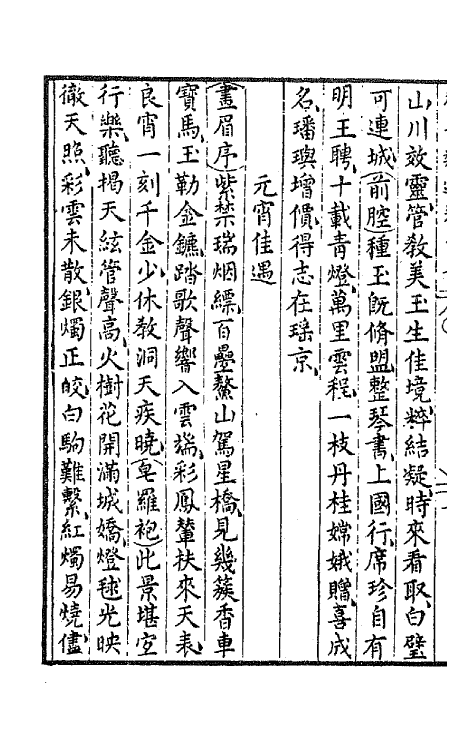 山川效靈管教美玉生佳境粹結凝時來看取白璧
可連城(前腔)種玉旣脩盟整琴書上國行席珍自有
明王聘十載青燈萬里雲程一枝丹桂嫦娥贈喜成
名璠璵增價得志在瑶京
元宵佳遇
(畫眉序)紫禁瑞烟縹百疊鰲山駕星橋見幾簇香車
寶馬玉勒金鑣踏歌聲響入雲端彩鳳輦扶來天表
良宵一刻千金少休教洞天疾曉(皂羅袍)此景堪宜
行樂聽揭天絃管聲高火樹花開滿城嬌燈毬光映
徹天照彩雲未散銀燭正皎白駒難繫紅燭易燒儘